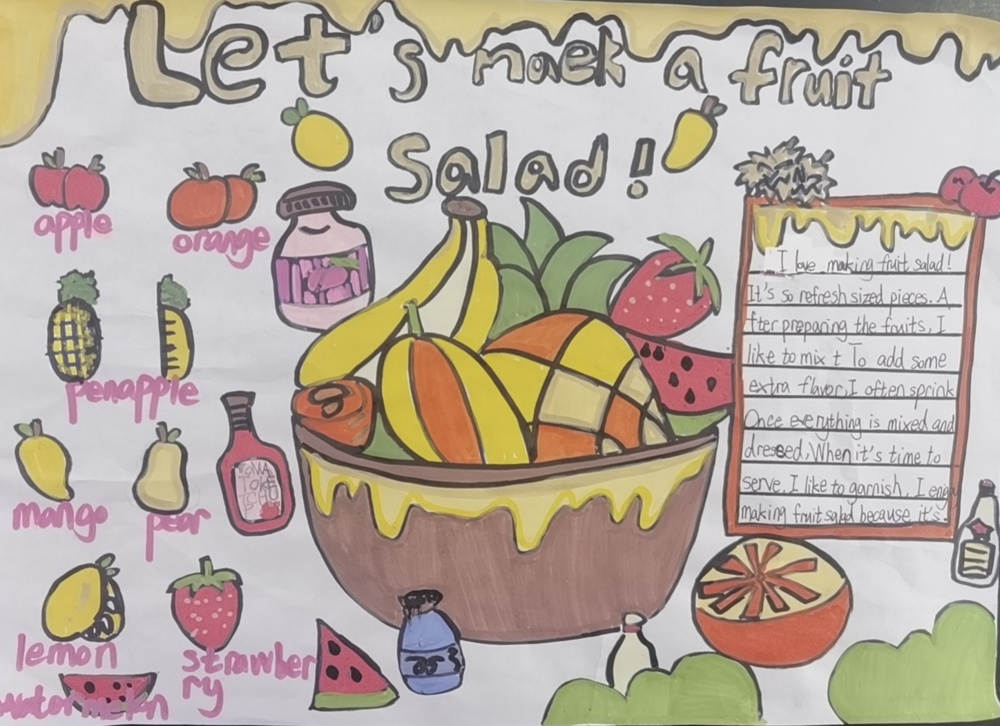 Let's maek a fruit
Salad!
apple
orange
penapple
mango
pear
lemon
strawber
ry
watormelon
I love making fruit salad!
It's so refresh sized pieces. A
fter preparing the fruits, I
like to mix t To add some
extra flavor, I often sprink
Once everything is mixed and
dressed, When it's time to
serve, I like to garnish, I enjoy
making fruit salad because it's.